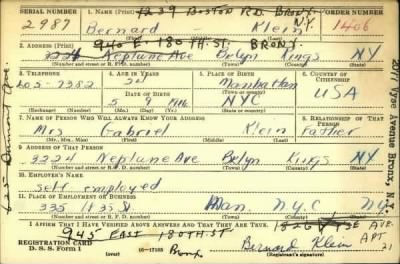 1239 BOSTON R.D. BRONX. N.Y.
SERIAL NUMBER 1. NAME (Print) ORDER NUMBER
2987 Bernard Klein 1406
940 E. 180TH. ST. BRONX.
2. ADDRESS (Print)
3224 Neptune Ave Bklyn Kings NY
3. TELEPHONE 4. AGE IN YEARS 5. PLACE OF BIRTH 6. COUNTRY OF CITIZENSHIP
24 Manhattan
DATE OF BIRTH (Town or county)
5 9 NYC USA
(Exchange) (Number) (Mo.) (Day) (Yr.) (State or country)
7. NAME OF PERSON WHO WILL ALWAYS KNOW YOUR ADDRESS 8. RELATIONSHIP OF THAT PERSON
Mrs Gabriel Klein Father
(Mr., Mrs., Miss) (First) (Middle) (Last)
9. ADDRESS OF THAT PERSON
3224 Neptune Ave Bklyn Kings NY
(Number and street or R. F. D. number) (Town) (County) (State)
10. EMPLOYER'S NAME
self employed
11. PLACE OF EMPLOYMENT OR BUSINESS
335 Man. N.Y.C NY
(Number and street or R. F. D. number) (Town) (County) (State)
I AFFIRM THAT I HAVE VERIFIED ABOVE ANSWERS AND THAT THEY ARE TRUE.
1826 VYSE AVE.
APT 21
945 EAST 180TH. ST
Bronx
REGISTRATION CARD
D. S. S. Form 1 16—17105
Bernard Klein
(Registrant's signature)
2077 Vyse Avenue Bronx, N.Y.